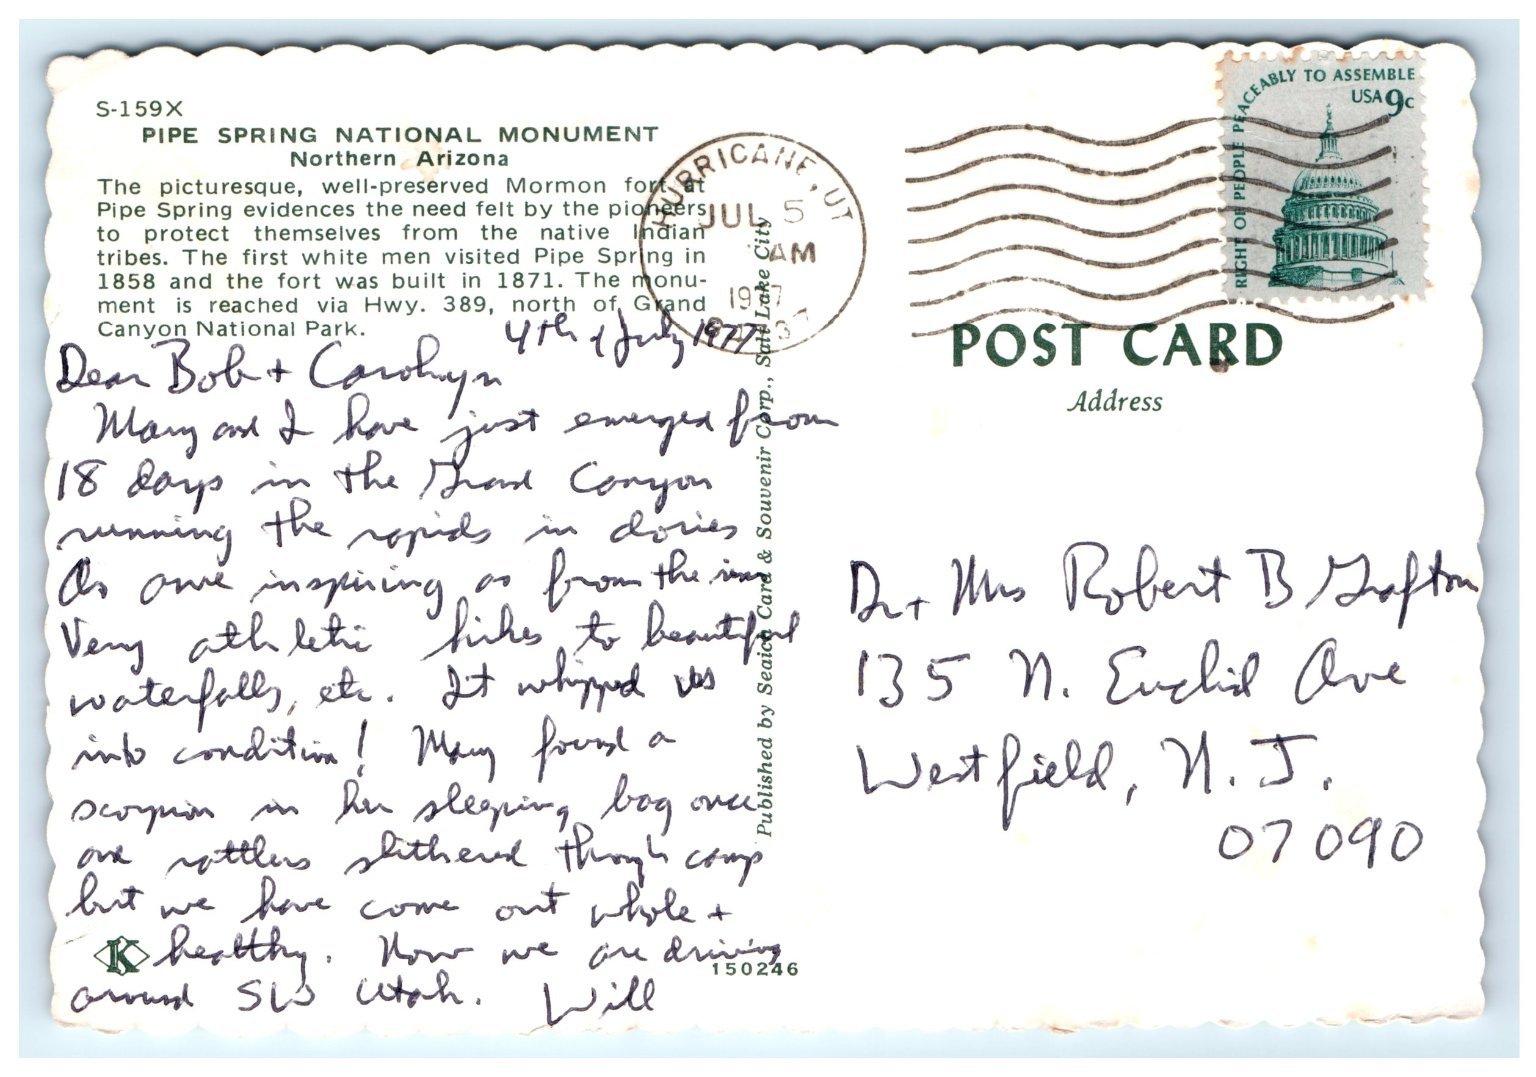 S-159X
PIPE SPRING NATIONAL MONUMENT
Northern Arizona
The picturesque, well-preserved Mormon fort at
Pipe Spring evidences the need felt by the pioneers
to protect themselves from the native Indian
tribes. The first white men visited Pipe Spring in
1858 and the fort was built in 1871. The monu-
ment is reached via Hwy. 389, north of Grand
Canyon National Park.
4th of July 1977
Dear Bob + Carolyn
Mary and I have just emerged from
18 days in the Grand Canyon
running the rapids in dories
As awe inspiring as from the rim
Very athletic hikes to beautiful
waterfalls, etc. It whipped us
into condition! Mary found a
scorpion in her sleeping bag once
and rattlers slithered through camp
but we have come out whole +
healthy. Now we are driving
around SW Utah. Will
K
150246
Published by Seaich Card & Souvenir Corp., Salt Lake City
HURRICANE, UT
JUL 5
AM
1977
RIGHT OF PEOPLE PEACEABLY TO ASSEMBLE
USA 9c
POST CARD
Address
Dr + Mrs Robert B Grafton
135 N. Euclid Ave
Westfield, N.J.
07090